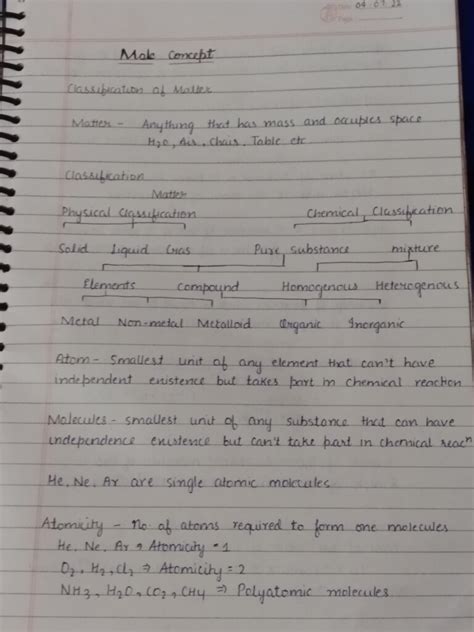 04.07.22
Mole Concept
Classification of Matter
Matter - Anything that has mass and occupies space
H₂O, Air, Chair, Table etc
Classification
Matter
Physical Classification Chemical Classification
Solid Liquid Gas Pure substance mixture
Elements Compound Homogenous Heterogenous
Metal Non-metal Metalloid Organic Inorganic
Atom - Smallest unit of any element that can't have
independent existence but takes part in chemical reaction
Molecules - smallest unit of any substance that can have
independence existence but can't take part in chemical reacn
He, Ne, Ar are single atomic molecules
Atomicity - no. of atoms required to form one molecules
He, Ne, Ar → Atomicity = 1
O₂, H₂, Cl₂ ⇒ Atomicity = 2
NH₃, H₂O, CO₂, CH₄ ⇒ Polyatomic molecules